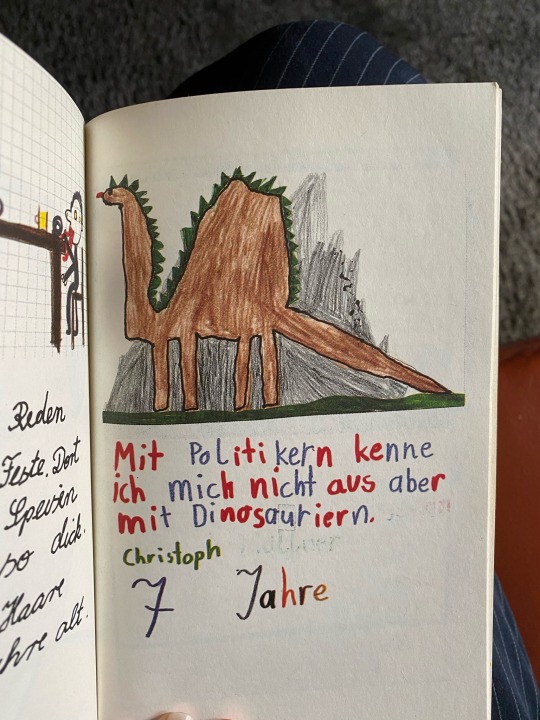 Reden
Feste. Dort
Speisen
so dick.
Haare
ahre alt.
Mit Politikern kenne
ich mich nicht aus aber
mit Dinosauriern.
Christoph
7 Jahre